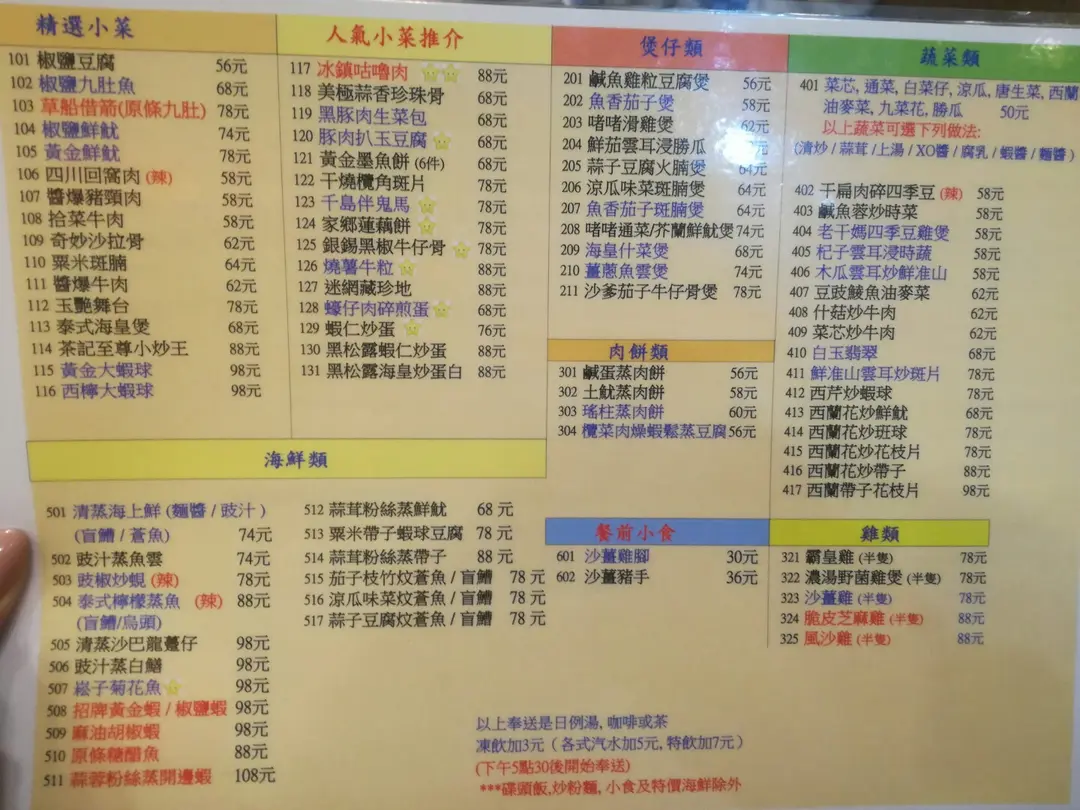 精選小菜
101 椒鹽豆腐 56元
102 椒鹽九肚魚 68元
103 草船借箭(原條九肚) 78元
104 椒鹽鮮魷 74元
105 黃金鮮魷 78元
106 四川回窩肉 (辣) 58元
107 醬爆豬頸肉 58元
108 拾菜牛肉 58元
109 奇妙沙拉骨 62元
110 粟米斑腩 64元
111 醬爆牛肉 62元
112 玉艷舞台 78元
113 泰式海皇煲 68元
114 茶記至尊小炒王 88元
115 黃金大蝦球 98元
116 西檸大蝦球 98元
人氣小菜推介
117 冰鎮咕嚕肉 88元
118 美極蒜香珍珠骨 68元
119 黑豚肉生菜包 68元
120 豚肉扒玉豆腐 68元
121 黃金墨魚餅 (6件) 68元
122 干燒欖角斑片 78元
123 千島伴鬼馬 78元
124 家鄉蓮藕餅 78元
125 銀錫黑椒牛仔骨 78元
126 燒薯牛粒 88元
127 迷網藏珍地 88元
128 蠔仔肉碎煎蛋 68元
129 蝦仁炒蛋 76元
130 黑松露蝦仁炒蛋 88元
131 黑松露海皇炒蛋白 88元
煲仔類
201 鹹魚雞粒豆腐煲 56元
202 魚香茄子煲 58元
203 啫啫滑雞煲 62元
204 鮮茄雲耳浸勝瓜
205 蒜子豆腐火腩煲 64元
206 涼瓜味菜斑腩煲 64元
207 魚香茄子斑腩煲 64元
208 啫啫通菜/芥蘭鮮魷煲 74元
209 海皇什菜煲 68元
210 薑蔥魚雲煲 74元
211 沙爹茄子牛仔骨煲 78元
肉餅類
301 鹹蛋蒸肉餅 56元
302 土魷蒸肉餅 58元
303 瑤柱蒸肉餅 60元
304 欖菜肉燥蝦鬆蒸豆腐 56元
蔬菜類
401 菜芯, 通菜, 白菜仔, 涼瓜, 唐生菜, 西蘭
油麥菜, 九菜花, 勝瓜 50元
以上蔬菜可選下列做法:
(清炒 / 蒜茸 / 上湯 / XO醬 / 腐乳 / 蝦醬 / 麵醬 )
402 干扁肉碎四季豆 (辣) 58元
403 鹹魚蓉炒時菜 58元
404 老干媽四季豆雞煲 58元
405 杞子雲耳浸時蔬 58元
406 木瓜雲耳炒鮮准山 58元
407 豆豉鯪魚油麥菜 62元
408 什菇炒牛肉 62元
409 菜芯炒牛肉 62元
410 白玉翡翠 68元
411 鮮准山雲耳炒斑片 78元
412 西芹炒蝦球 78元
413 西蘭花炒鮮魷 68元
414 西蘭花炒班球 78元
415 西蘭花炒花枝片 78元
416 西蘭花炒帶子 88元
417 西蘭帶子花枝片 98元
海鮮類
501 清蒸海上鮮 (麵醬 / 豉汁 )
(盲鰽 / 蒼魚) 74元
502 豉汁蒸魚雲 74元
503 豉椒炒蜆 (辣) 78元
504 泰式檸檬蒸魚 (辣) 88元
(盲鰽/烏頭)
505 清蒸沙巴龍躉仔 98元
506 豉汁蒸白鱔 98元
507 崧子菊花魚 98元
508 招牌黃金蝦 / 椒鹽蝦 98元
509 麻油胡椒蝦 98元
510 原條糖醋魚 88元
511 蒜蓉粉絲蒸開邊蝦 108元
512 蒜茸粉絲蒸鮮魷 68 元
513 粟米帶子蝦球豆腐 78 元
514 蒜茸粉絲蒸帶子 88 元
515 茄子枝竹炆蒼魚 / 盲鰽 78 元
516 涼瓜味菜炆蒼魚 / 盲鰽 78 元
517 蒜子豆腐炆蒼魚 / 盲鰽 78 元
餐前小食
601 沙薑雞腳 30元
602 沙薑豬手 36元
雞類
321 霸皇雞 (半隻) 78元
322 濃湯野菌雞煲 (半隻) 78元
323 沙薑雞 (半隻) 78元
324 脆皮芝麻雞 (半隻) 88元
325 風沙雞 (半隻) 88元
以上奉送是日例湯, 咖啡或茶
凍飲加3元 ( 各式汽水加5元, 特飲加7元 )
(下午5點30後開始奉送)
***碟頭飯,炒粉麵, 小食及特價海鮮除外